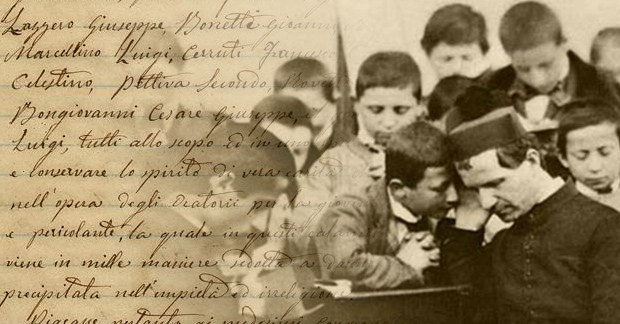 Lazzero Giuseppe, Bonetti Giovanni
Marcellino Luigi, Cerruti Francesco
Celestino, Pettiva Secondo, Rove
Bongiovanni Cesare Giuseppe,
Luigi, tutti allo scopo ed in uno
e conservare lo spirito di vera carità
nell'opera degli Oratorii per la
e pericolante, la quale in questi cala
viene in mille maniere sedotta a dan
precipitata nell'impietà ed irreligione
Piacque pertanto ai medesimi